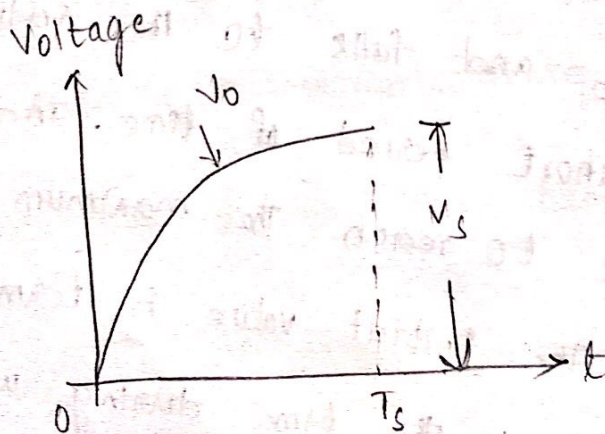 Voltage
V0
Vs
t
0
Ts